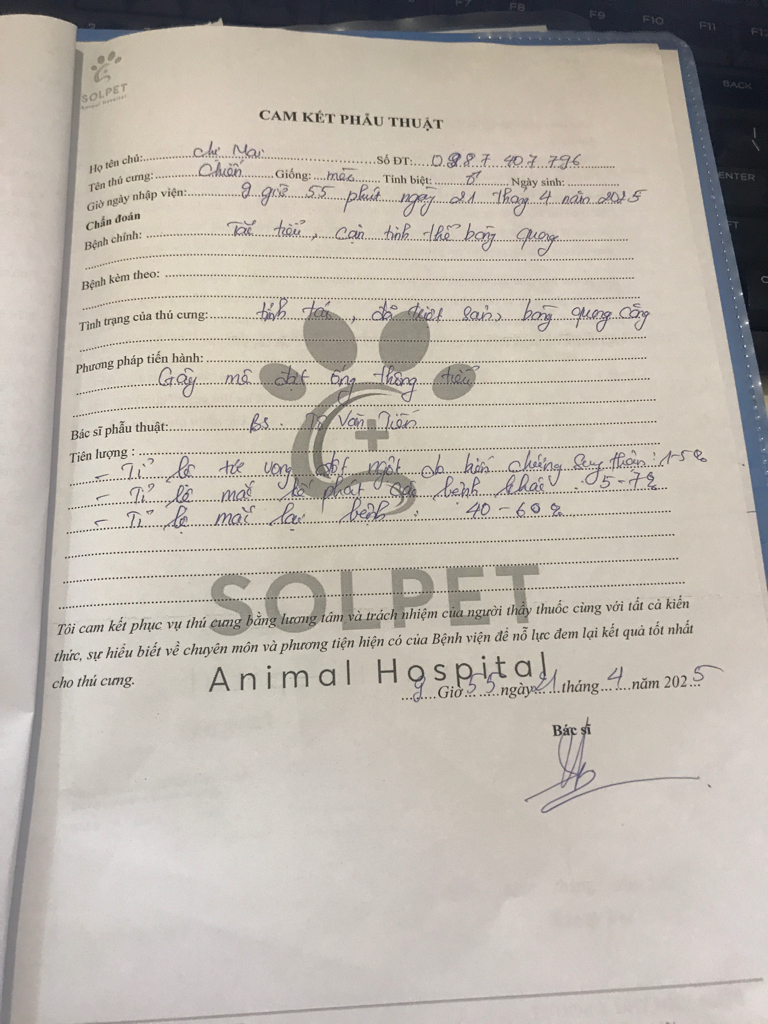 SOLPET
Animal Hospital
CAM KẾT PHẪU THUẬT
Họ tên chủ: Chị Mai Số ĐT: 0987 407 796
Tên thú cưng: Chiến Giống: mèo Tính biệt: ♂ Ngày sinh:
Giờ ngày nhập viện: 9 giờ 55 phút ngày 21 tháng 4 năm 2025
Chẩn đoán
Bệnh chính: Tắc tiểu, cặn tinh thể bàng quang
Bệnh kèm theo:
Tình trạng của thú cưng: tỉnh táo, đã triệt sản, bàng quang căng
Phương pháp tiến hành:
Gây mê đặt ống thông tiểu
Bác sĩ phẫu thuật: Bs. Văn Tiến
Tiên lượng :
- Tỉ lệ tử vong đột ngột do biến chứng suy thận: 1-5%
- Tỉ lệ mắc kế phát các bệnh khác : 5-7%
- Tỉ lệ mắc lại bệnh : 40-60%
SOLPET
Tôi cam kết phục vụ thú cưng bằng lương tâm và trách nhiệm của người thầy thuốc cùng với tất cả kiến
thức, sự hiểu biết về chuyên môn và phương tiện hiện có của Bệnh viện để nỗ lực đem lại kết quả tốt nhất
cho thú cưng.
Animal Hospital
9 Giờ 55 ngày 21 tháng 4 năm 2025
Bác sĩ